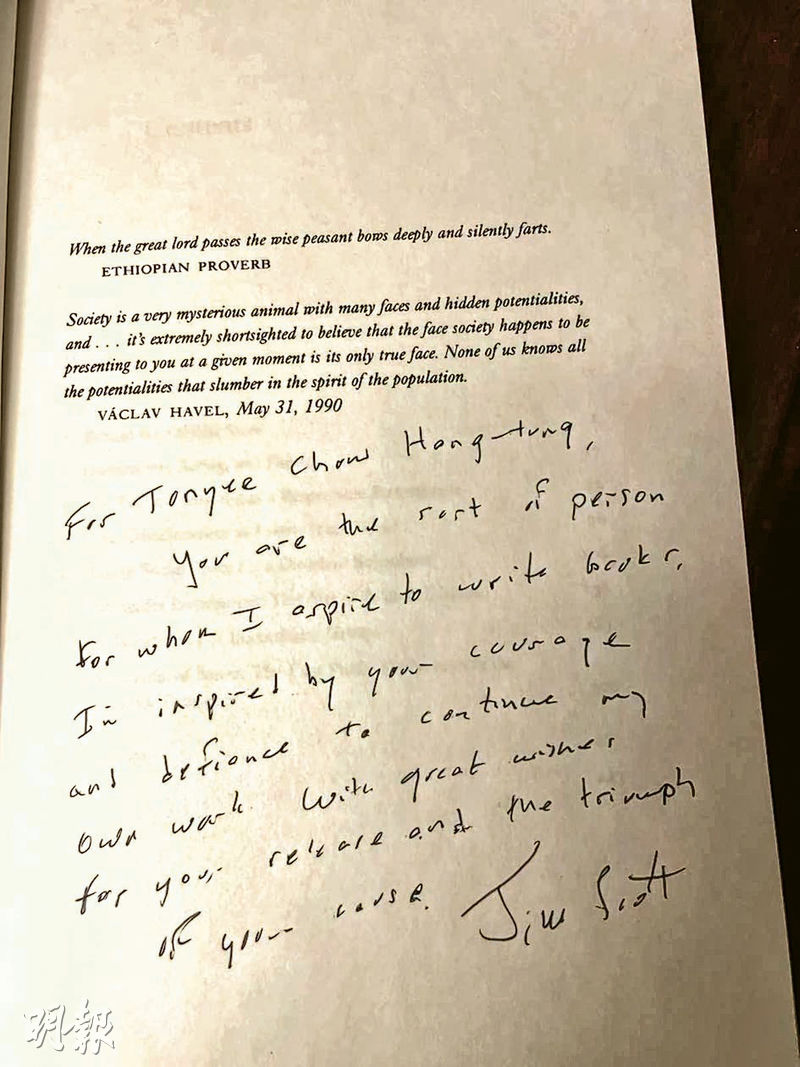 When the great lord passes the wise peasant bows deeply and silently farts.
ETHIOPIAN PROVERB
Society is a very mysterious animal with many faces and hidden potentialities,
and . . . it's extremely shortsighted to believe that the face society happens to be
presenting to you at a given moment is its only true face. None of us knows all
the potentialities that slumber in the spirit of the population.
VÁCLAV HAVEL, May 31, 1990
For Tonyee Chow Hang-tung,
You are the sort of person
for whom I aspire to write books.
I'm inspired by your courage
and defiance to continue my
own work. With great wishes
for your release and the triumph
of your cause. Jim Scott
明報